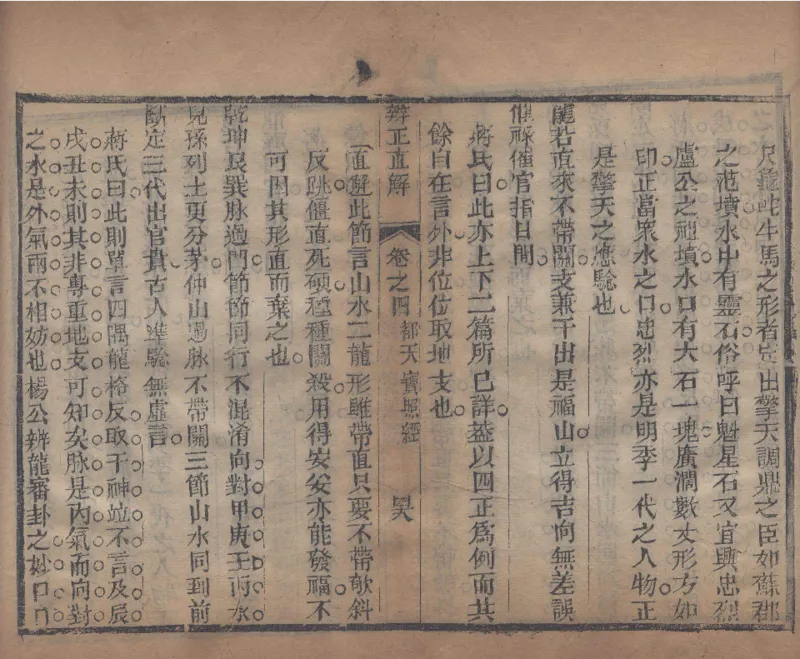 尺龜蛇牛馬之形者定出擎天調鼎之臣如蘇郡
之范墳水中有靈石俗呼曰魁星石又宜興忠烈
盧公之祖墳水口有大石一塊廣濶數丈形方如
印正當衆水之口忠烈亦是明季一代之人物正
是擎天之應騐也
龍若直來不帶關支兼干出是福山立得吉向無差誤
催祿催官指日間
蔣氏曰此亦上下二篇所已詳葢以四正爲例而其
餘自在言外非位位取地支也
辨正直解
卷之四都天寶照經
直解此節言山水二龍形雖帶直只要不帶欹斜
反跳僵直死硬種種關殺用得安妥亦能發福不
可因其形直而棄之也
乾坤艮巽脉過門節節同行不混淆向對甲庚壬丙水
兒孫列土更分茅仲山過脉不帶關三節山水同到前
斷定三代出官貴古人準騐無虛言
蔣氏曰此則單言四隅龍格反取干神竝不言及辰
戌丑未則其非專重地支可知矣脉是內氣而向對
之水是外氣兩不相妨也楊公辨龍審卦之妙口口